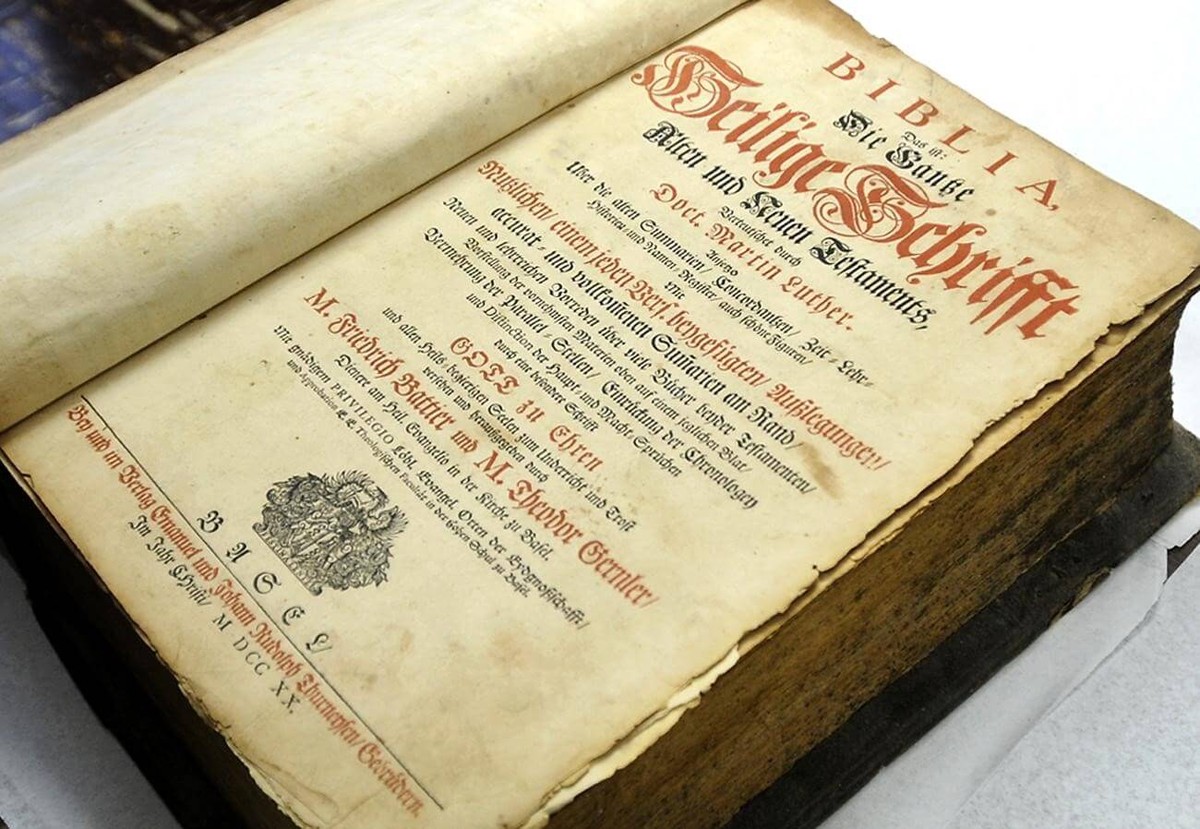 BIBLIA,
Das ist:
Die Gantze
Heilige Schrifft
Alten und Neuen Testaments,
Vertauschet durch
Doct. Martin Luther.
Anjezo
Über die alten Summarien/ Concordantzen/ Zeit- Lehr-
Historien- und Namen-Register/ auch schöne Figuren/
Mit
Nutzlichen/ einem jeden Vers. beygefügten/ Außlegungen/
accurat- und vollkom̃enen Sum̃arien am Rand/
Neuen und lehrreichen Vorreden über viele Bücher beyder Testamenten/
Vorstellung der vornehmsten Materien oben auf einem jeglichen Blat/
Vermehrung der Parallel-Stellen/ Einrückung der Chronologey
und Distinction der Haupt- und Macht-Sprüchen
durch eine besonder Schrifft
GOTT zu Ehren
und allen Heils-begierigen Seelen zum Unterricht und Trost
versehen und herausgegeben durch
M. Friedrich Battier und M. Theodor Gernler/
Diener am Heil. Evangelio in der Kirche zu Basel.
Mit gnädigem PRIVILEGIO Löbl. Evangel. Orten der Eydgnoßschafft/
und Approbation E. E. Theologischen Facultät in der Hohen Schul zu Basel.
BASEL/
Bey und im Verlag Emanuel und Johann Rudolph Thurneysen/ Gebrüdern.
Im Jahr Christi/ M DCC XX.